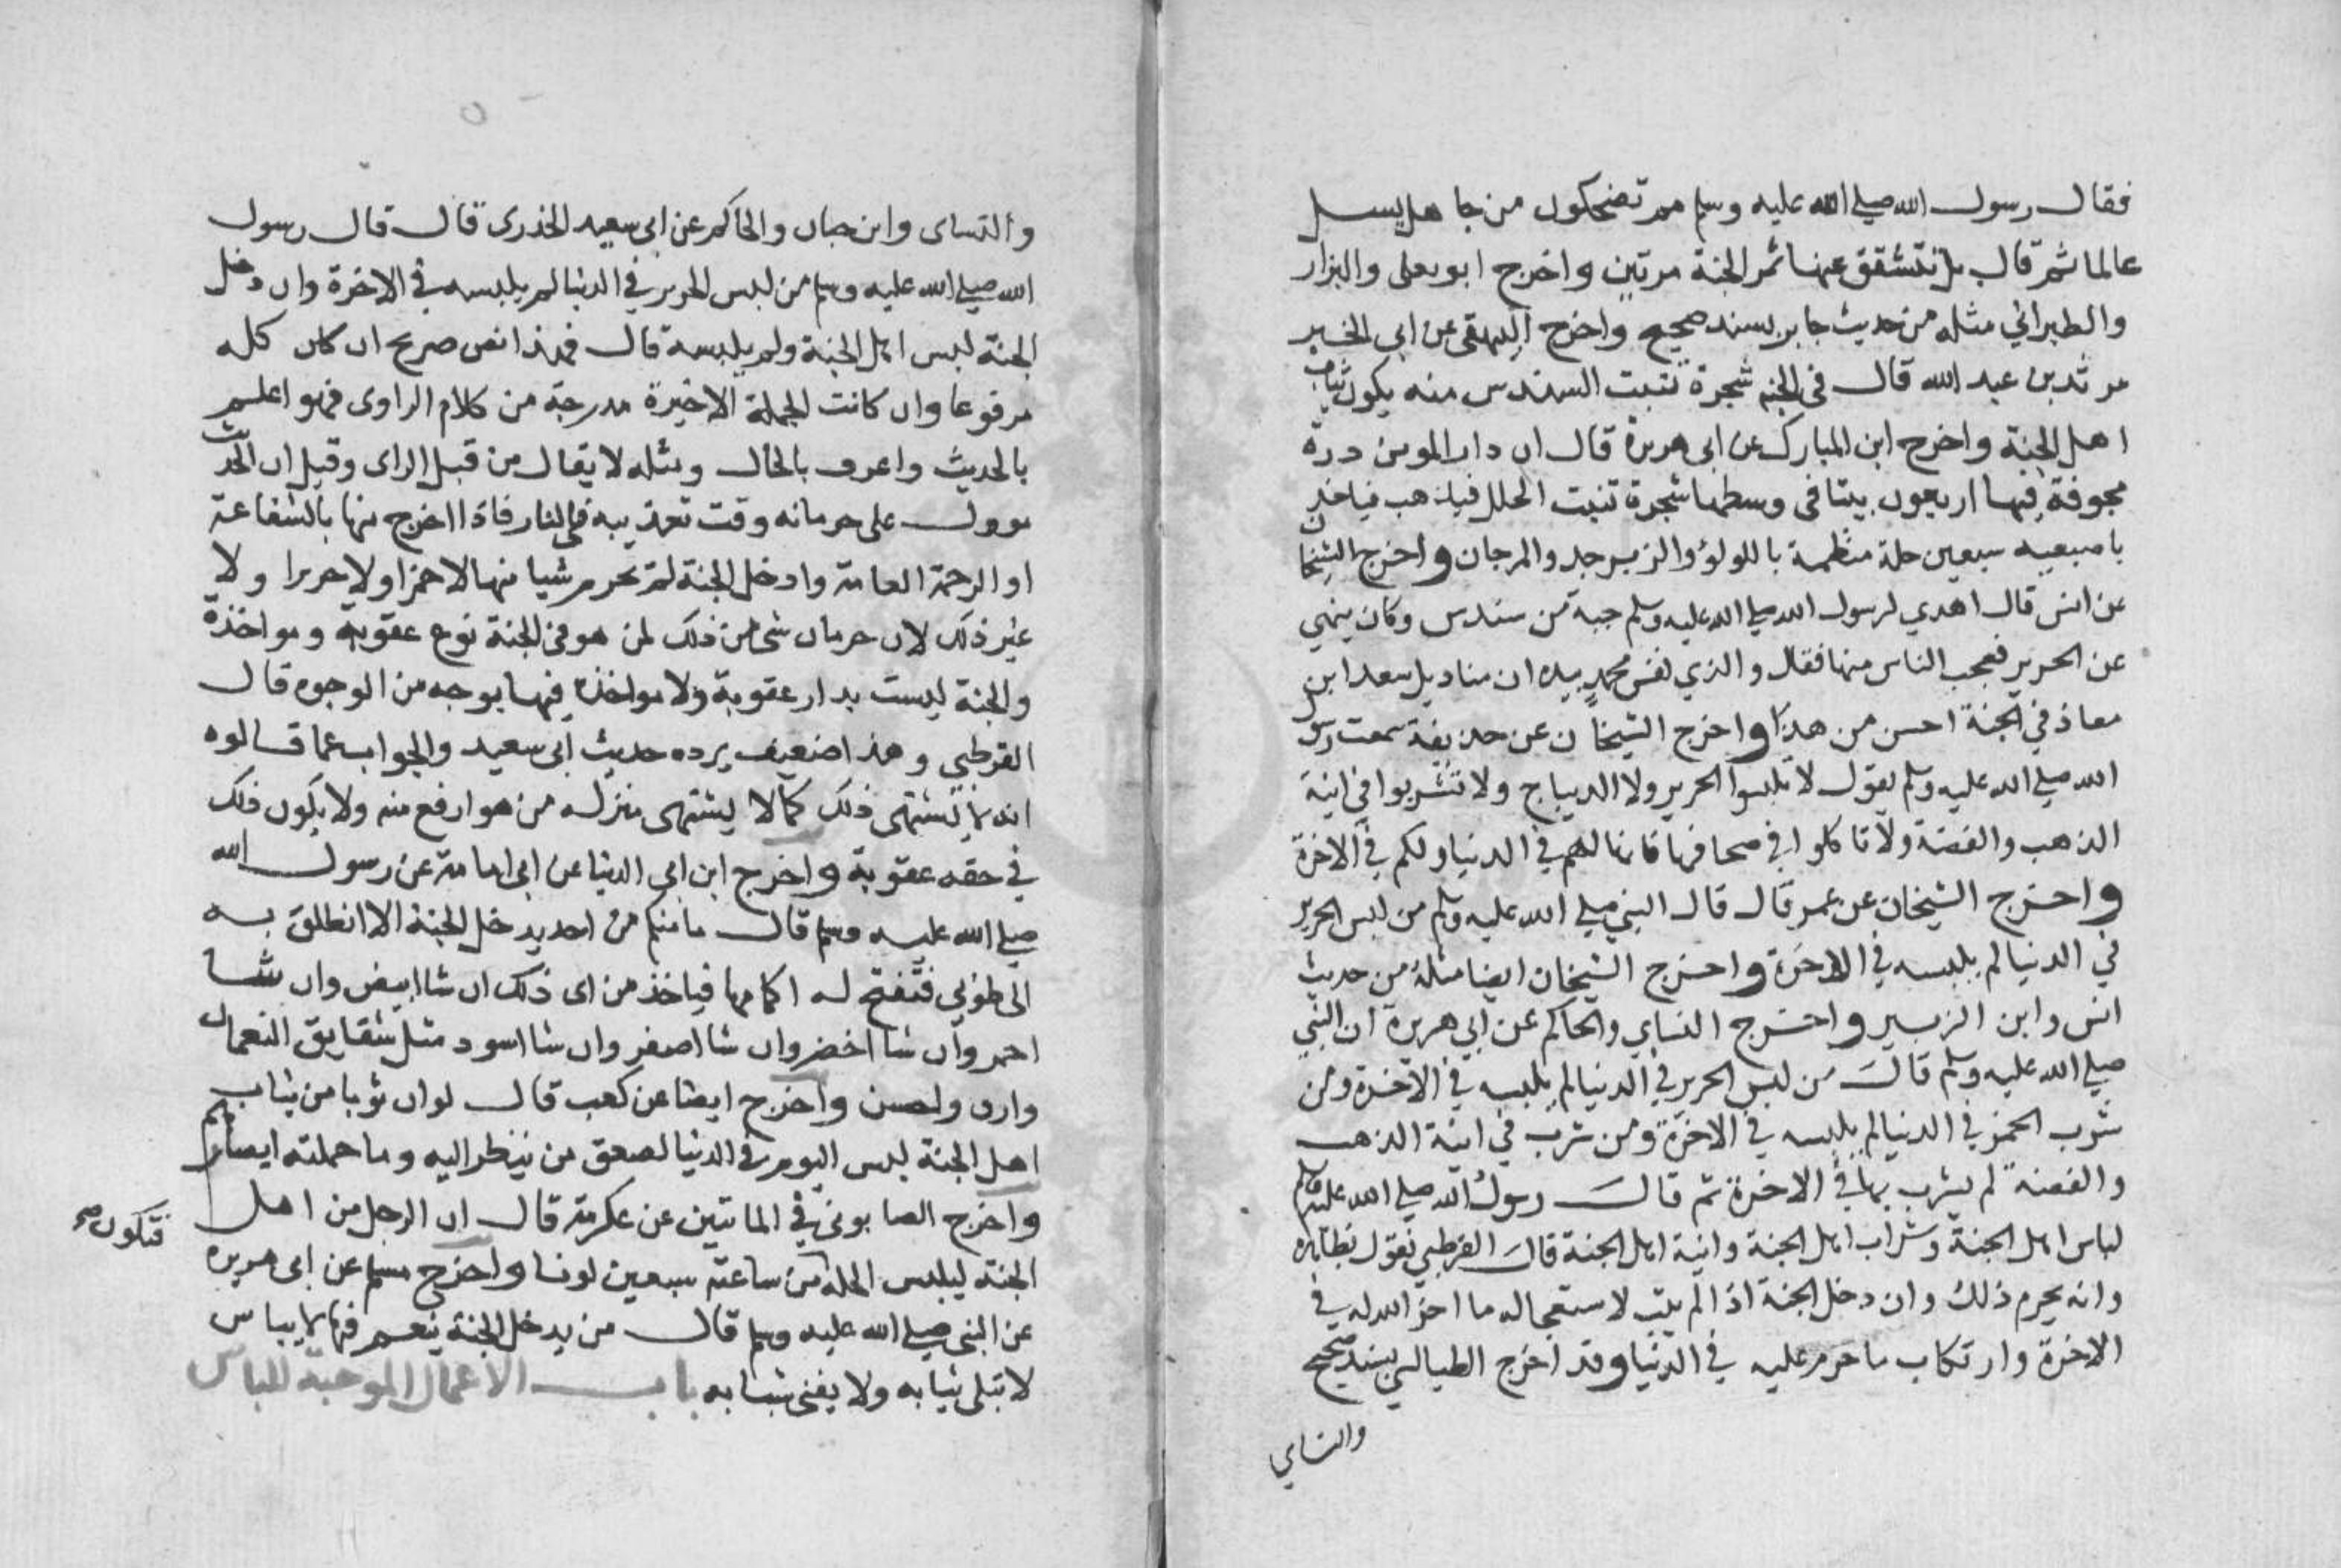 فقال رسول الله صلي الله عليه وسلم مم تضحكون من جاهل يسل
عالما ثم قال بل تتشقق عنها ثمر الجنة مرتين واخرج ابو يعلي والبزار
والطبراني مثله من حديث جابر بسند صحيح واخرج البيهقي عن ابي الخير
مرثد بن عبد الله قال في الجنه شجرة تنبت السندس منه يكون ثياب
اهل الجنة واخرج ابن المبارك عن ابي هريرة قال ان دار المومن درة
مجوفة فيها اربعون بيتا في وسطها شجرة تنبت الحلل فيذهب فياخذ
باصبعيه سبعين حلة منظمة باللولؤ والزبرجد والمرجان واخرج الشيخان
عن انس قال اهدي لرسول الله صلي الله عليه وسلم جبة من سندس وكان ينهي
عن الحرير فعجب الناس منها فقال والذي نفس محمد بيده ان مناديل سعد ابن
معاذ في الجنة احسن من هذا واخرج الشيخان عن حذيفة سمعت رسول
الله صلي الله عليه وسلم يقول لا تلبسوا الحرير ولا الديباج ولا تشربوا في انية
الذهب والفضة ولا تاكلوا في صحافها فانها لهم في الدنيا ولكم في الاخرة
واخرج الشيخان عن عمر قال قال النبي صلي الله عليه وسلم من لبس الحرير
في الدنيا لم يلبسه في الاخرة واخرج الشيخان ايضا مثله من حديث
انس وابن الزبير واخرج النساي والحاكم عن ابي هريرة ان النبي
صلي الله عليه وسلم قال من لبس الحرير في الدنيا لم يلبسه في الاخرة ومن
شرب الخمر في الدنيا لم يلبسه في الاخرة ومن شرب في انية الذهب
والفضة لم يشرب بها في الاخرة ثم قال رسول الله صلي الله عليه وسلم
لباس اهل الجنة وشراب اهل الجنة وانية اهل الجنة قال القرطبي نقول بظاهره
وانه يحرم ذلك وان دخل الجنة اذا لم يتب لاستعجاله ما اخر الله له في
الاخرة وارتكاب ما حرم عليه في الدنيا وقد اخرج الطيالسي بسند صحيح
والنساي
والنساى وابن حبان والحاكم عن ابى سعيد الخدرى قال قال رسول
الله صلي الله عليه وسلم من لبس الحرير في الدنيا لم يلبسه في الاخرة وان دخل
الجنة لبس اهل الجنة ولم يلبسه قال فهذا نص صريح ان كان كله
مرفوعا وان كانت الجملة الاخيرة مدرجة من كلام الراوى فهو اعلم
بالحديث واعرف بالحال ومثله لا يقال من قبل الراى وقيل ان الحديث
موول على حرمانه وقت تعذيبه في النار فاذا اخرج منها بالشفاعة
او الرحمة العامة وادخل الجنة لم تحرم شيا منها لا خمرا ولا حريرا ولا
غير ذلك لان حرمان شى من ذلك لمن هو في الجنة نوع عقوبة ومواخذة
والجنة ليست بدار عقوبة ولا مواخذة فيها بوجه من الوجوه قال
القرطبي وهذا ضعيف يرده حديث ابى سعيد والجواب عما قالوه
انه لا يشتهى ذلك كما لا يشتهى منزله من هو ارفع منه ولا يكون ذلك
في حقه عقوبة واخرج ابن ابي الدنيا عن ابى امامة عن رسول الله
صلي الله عليه وسلم قال ما منكم من احد يدخل الجنة الا انطلق به
الى طوبي فتفتح له اكمامها فياخذ من اى ذلك ان شا ابيض وان شا
احمر وان شا اخضر وان شا اصفر وان شا اسود مثل شقايق النعمان
وارق واحسن واخرج ايضا عن كعب قال لو ان ثوبا من ثياب
اهل الجنة لبس اليوم في الدنيا لصعق من ينظر اليه وما حملته ابصارهم
واخرج الصابوني في الماتين عن عكرمة قال ان الرجل من اهل
فتكون صح
الجنة ليلبس الحلة من ساعته سبعين لونا واخرج مسلم عن ابى هريره
عن النبى صلي الله عليه وسلم قال من يدخل الجنة ينعم فيها لا يباس
لا تبلى ثيابه ولا يفنى شبابه باب الاعمال الموجبة للباس